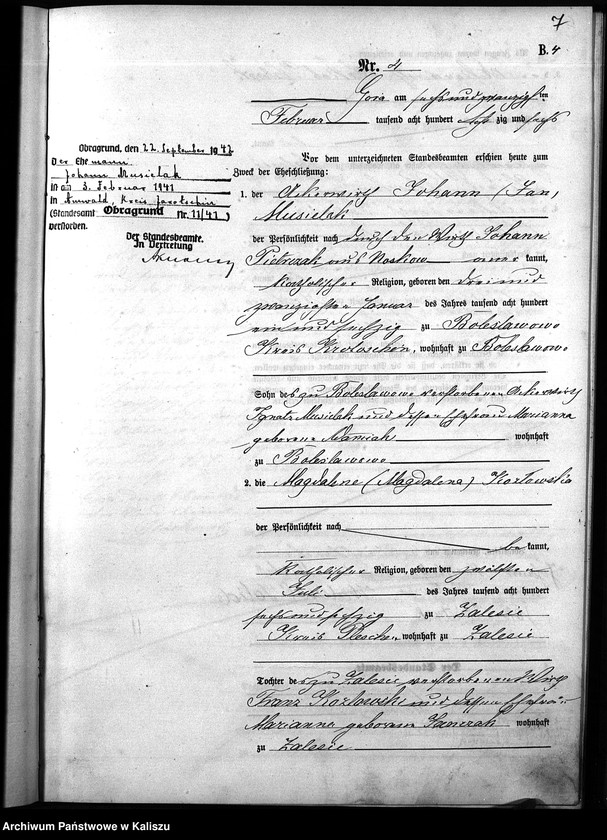 7
B. 4
Nr. 4
Góra am sechsundzwanzigsten
Februar tausend acht hundert acht zig und sechs
Obragrund, den 22. September 1942
Der Ehemann
Johann Musielak
ist am 3. Februar 1941
in Annwald, Kreis Jarotschin
(Standesamt Obragrund Nr. 11/41)
verstorben.
Der Standesbeamte.
In Vertretung
Vor dem unterzeichneten Standesbeamten erschien heute zum
Zweck der Eheschließung:
1. der Ackerwirth Johann (Jan)
Musielak
der Persönlichkeit nach durch den Wirth Johann
Pietrzak aus Noskow aner kannt,
katholischer Religion, geboren den drei und
zwanzigsten Januar des Jahres tausend acht hundert
ein und sechzig zu Boleslawowo
Kreis Krotoschin, wohnhaft zu Boleslawowo
Sohn des zu Boleslawowo verstorbenen Ackerwirth
Ignatz Musielak und dessen Ehefrau Marianna
geborene Adamiak wohnhaft
zu Boleslawowo
2. die Magdalene (Magdalena) Kozlowska
der Persönlichkeit nach
be kannt,
katholischer Religion, geboren den zwölften
Juli des Jahres tausend acht hundert
sechsundsechzig zu Zalesie
Kreis Pleschen, wohnhaft zu Zalesie
Tochter des zu Zalesie verstorbenen Wirth
Franz Kozlowski und dessen Ehefrau
Marianna geborene Janczak wohnhaft
zu Zalesie
Archiwum Państwowe w Kaliszu